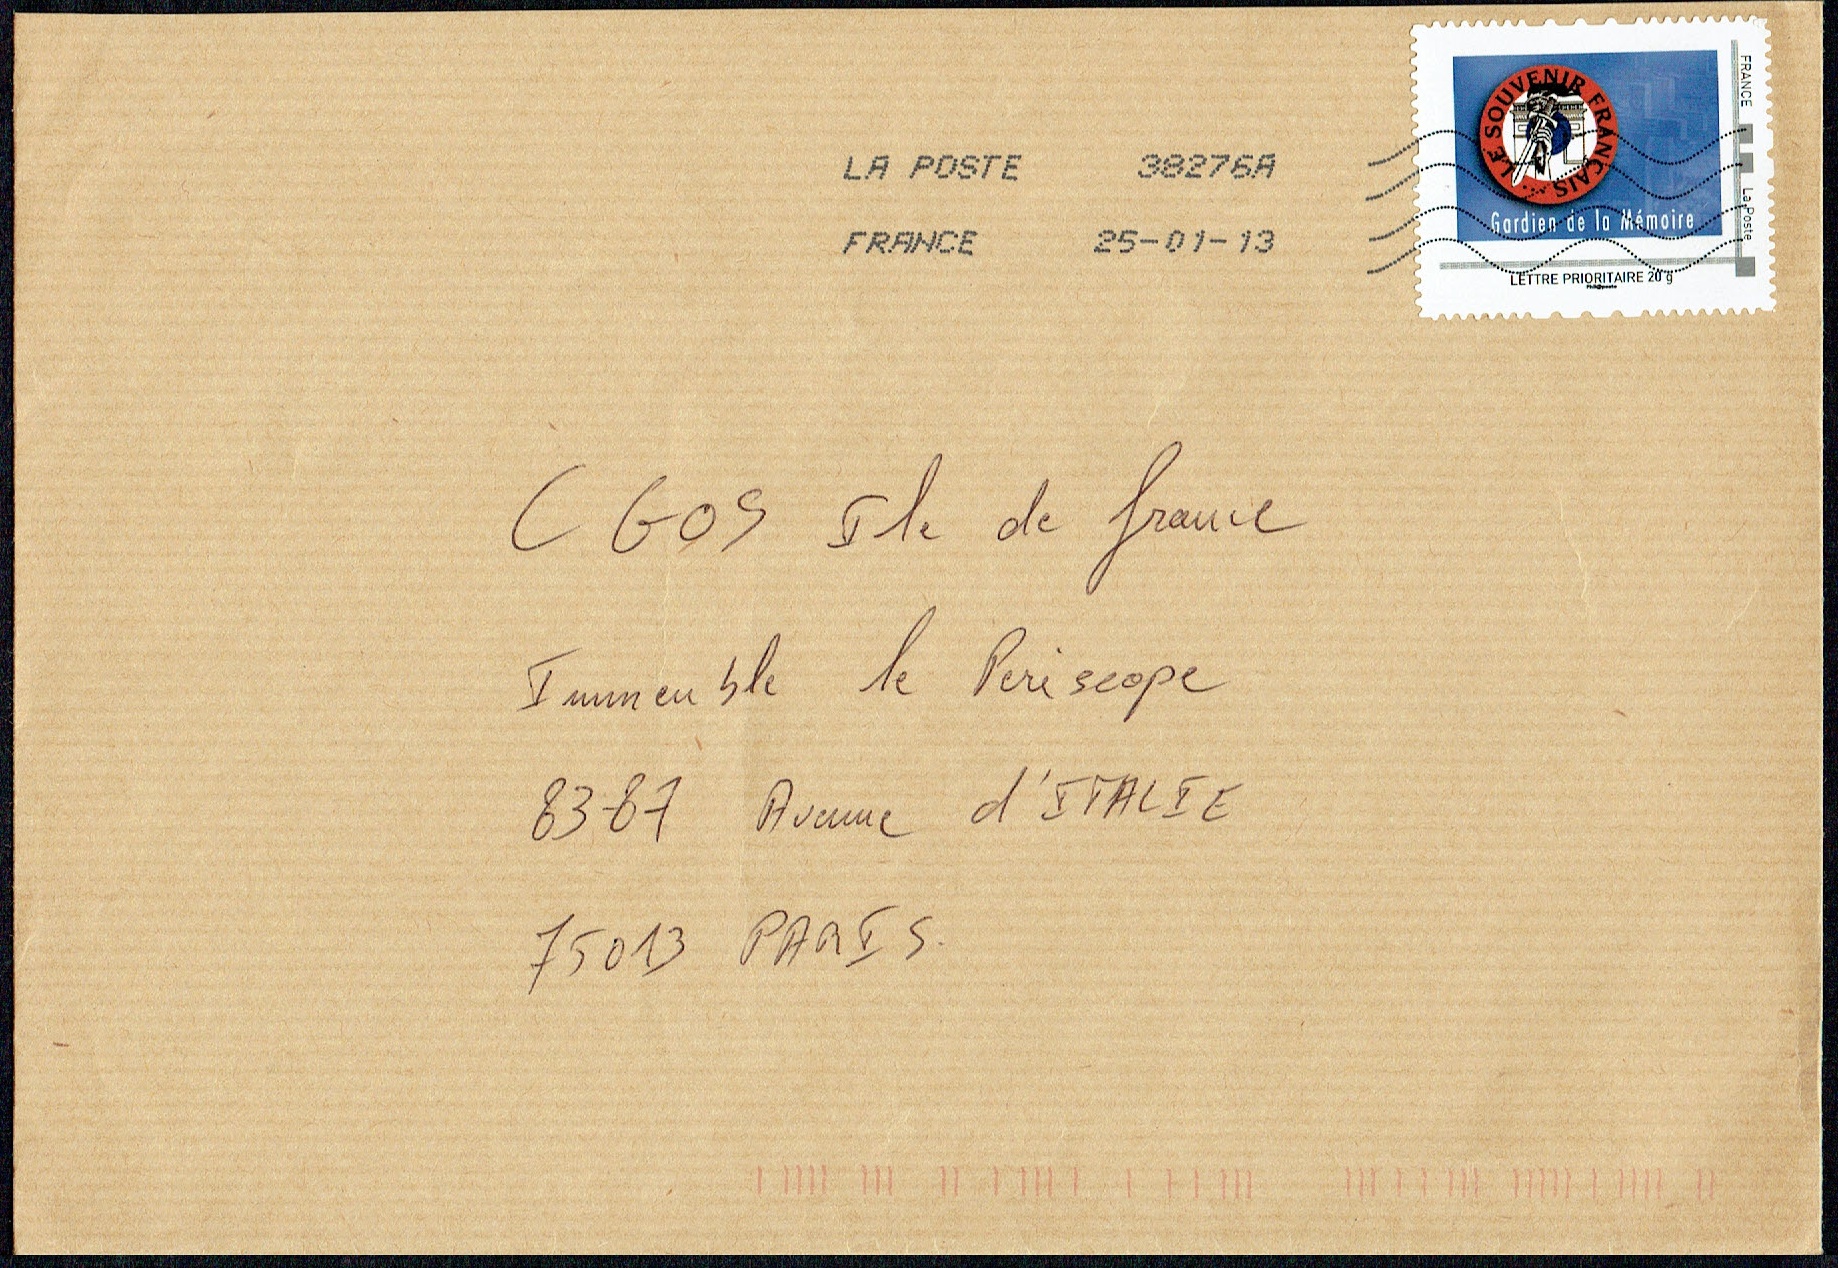 LE SOUVENIR FRANÇAIS
Gardien de la Mémoire
FRANCE
La Poste
LETTRE PRIORITAIRE 20 g
Phil@poste
LA POSTE 38276A
FRANCE 25-01-13
CGOS Ile de france
Immeuble le Periscope
83-87 Avenue d'ITALIE
75013 PARIS.